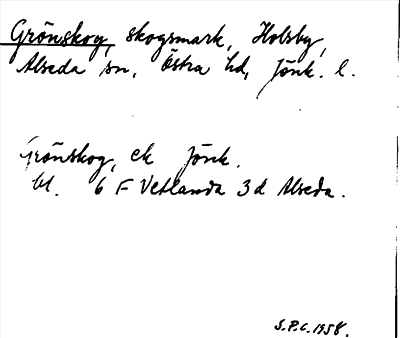 Grönskog, skogsmark, Holsby,
Alseda sn, Östra hd, Jönk. l.
Grönskog, ek Jönk.
bl. 6 F Vetlanda 3 d Alseda.
S.P.C. 1958.